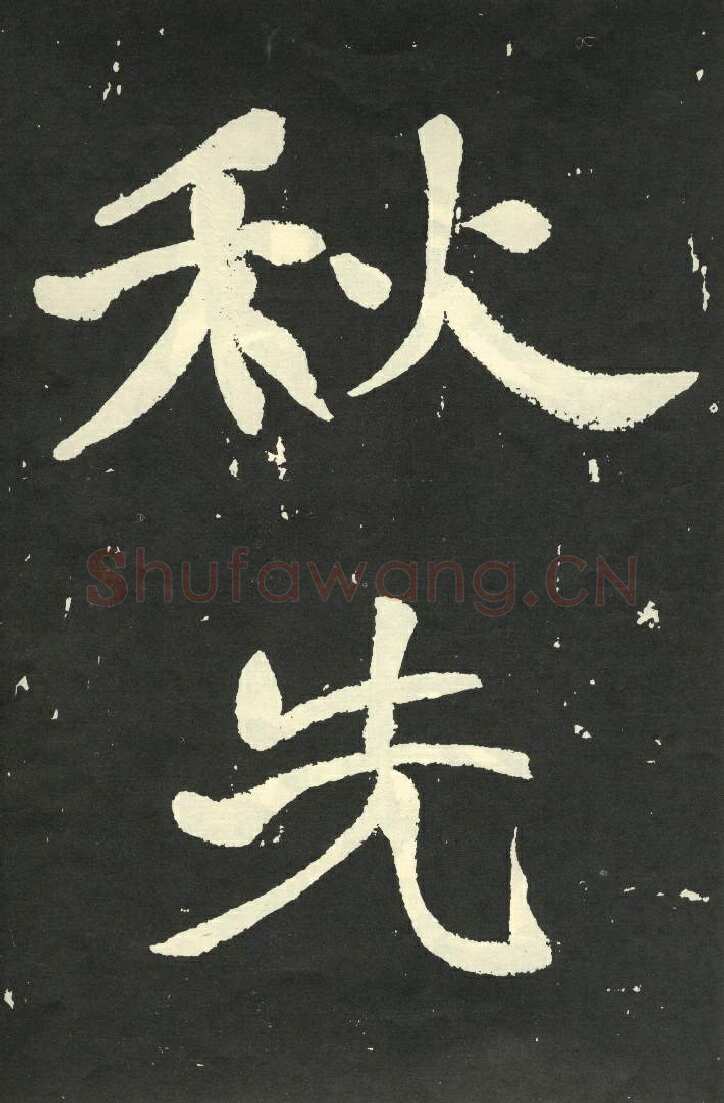 秋
先
Shufawang.CN